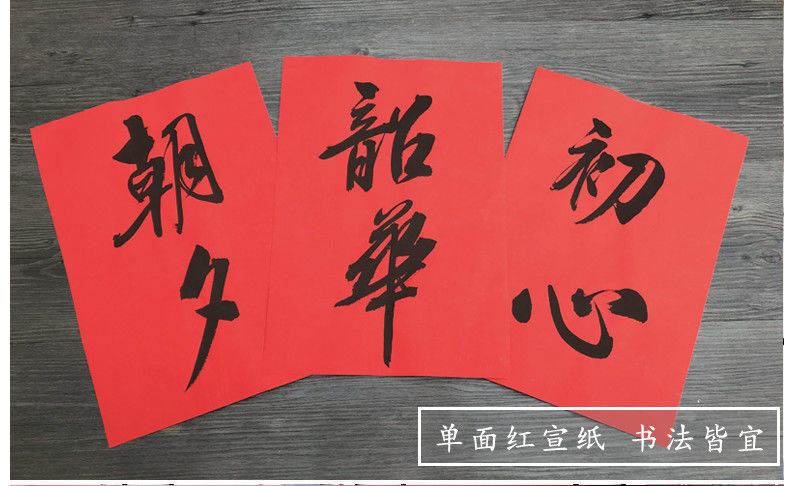 朝夕
韶华
初心
单面红宣纸 书法皆宜